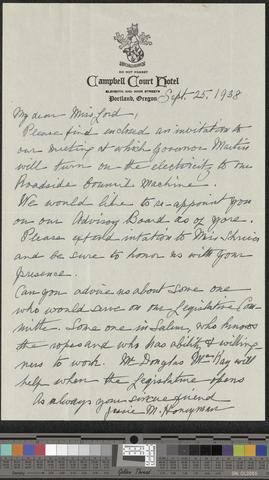 DO NOT FORGET
Campbell Court Hotel
ELEVENTH AND MAIN STREETS
Portland, Oregon
Sept. 25, 1938
My dear Miss Lord,
Please find enclosed an invitation to
our meeting at which Governor Martin
will turn on the electricity to our
Roadside Council Machine.
We would like to re-appoint you
on our Advisory Board as of yore.
Please extend invitation to Mrs.
and be sure to honor us with your
presence.
Can you advise us about some one
who would serve on our Legislative Com-
mitte. Some one in Salem, who knows
the ropes and who has ability & willing-
ness to work. Mr Douglas McKay will
help when the Legislature opens
As always your sincere friend
Jessie M. Honeyman
Golden Thread